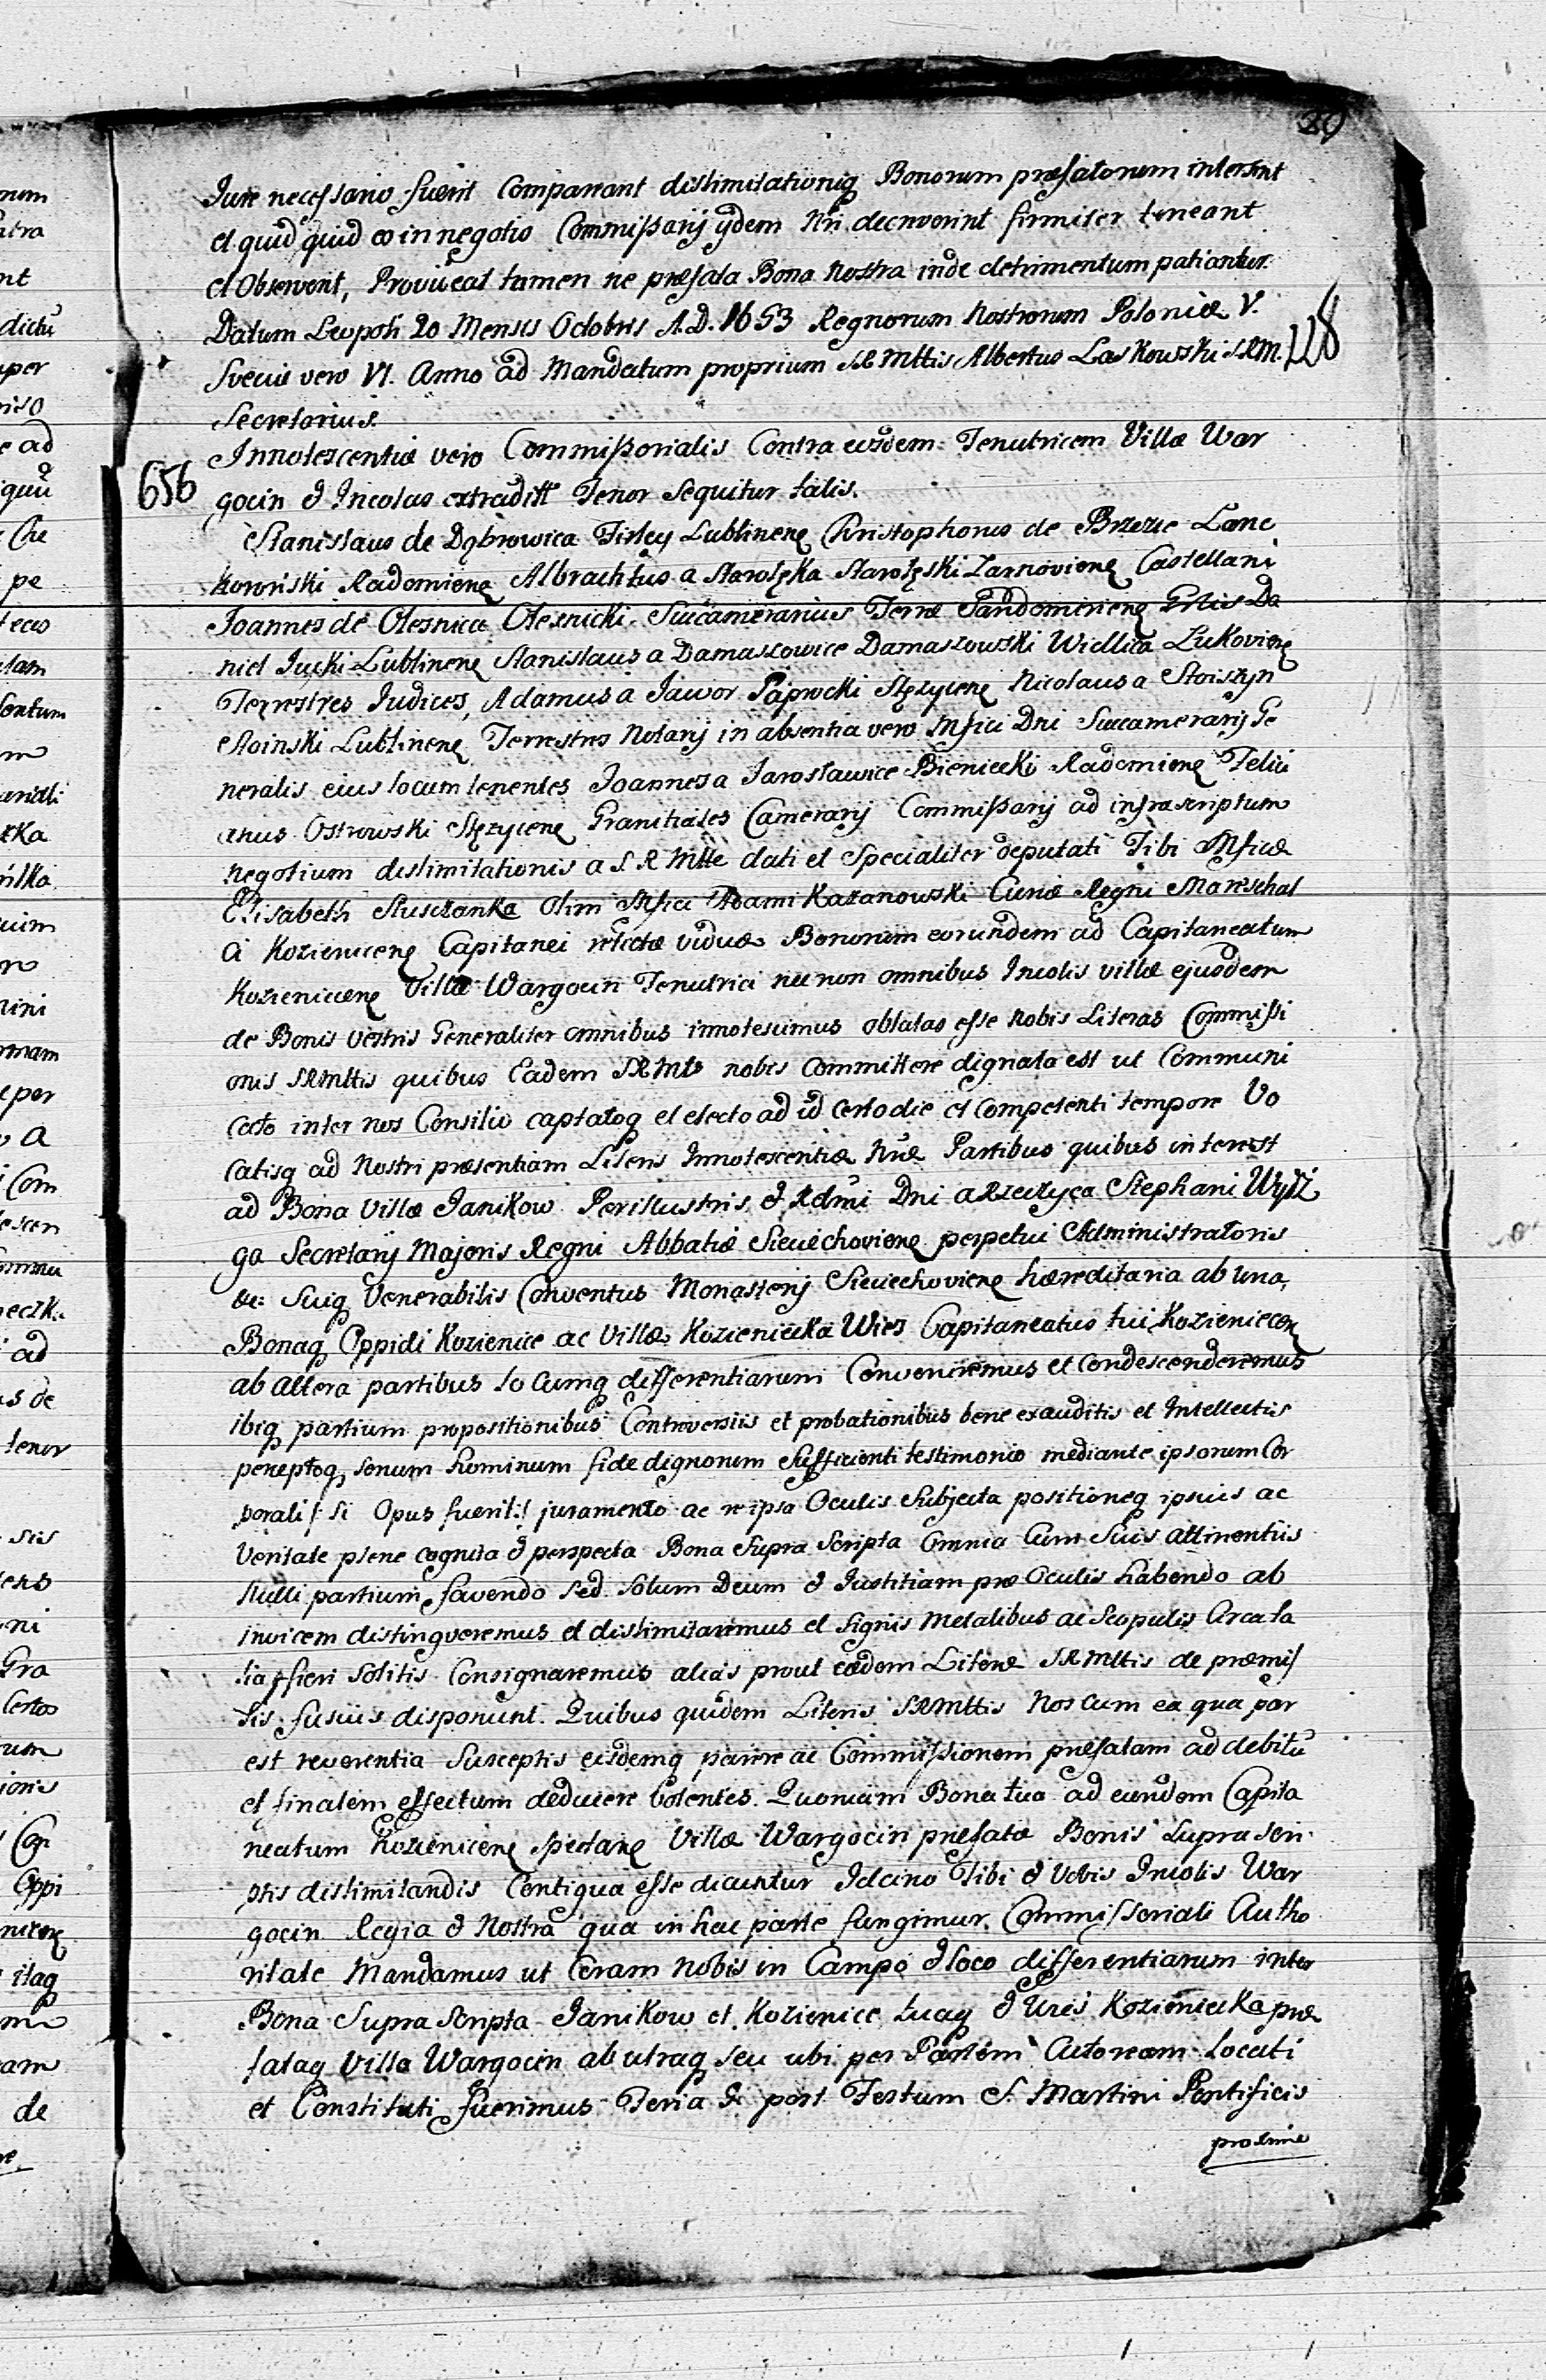 29
Jure necessario fuerit Compareant dislimitationiq Bonorum præfatorum intersint
et quid quid eo in negotio Commissarij ijdem Nri decreverint firmiter teneant
et Observent, Provideat tamen ne præfata Bona Nostra inde detrimentum patiantur.
Datum Leopoli 20 Mensis Octobris A.D. 1653 Regnorum Nostrorum Poloniæ V.
Sveciæ vero VI. Anno ad Mandatum proprium SRMttis Albertus Laskowski SRM. 228
Secretarius.
Innotescentiæ vero Commissorialis Contra eiusdem Tenutricem Villæ War
656 gocin & Incolas extraditt Tenor Sequitur talis.
Stanislaus de Dąbrowica Firley Lublinen Christophorus de Brzezie Lanc
koroński Radomien Albrachtus a Starołęka Starołęski Zarnovien Castellani
Joannes de Olesnica Olesnicki Succamerarius Terræ Sandomirien Gnlis Da
niel Jucki Lublinen Stanislaus a Damaszowice Damaszowski Lukovien
Terrestres Judices, Adamus a Jawor Stężycen Nicolaus a Stoiszyn
Stoinski Lublinen Terrestres Notarij in absentia vero Mfici Dni Succamerarij Ge
neralis eius locum tenentes Joannes a Jarosławice Bieniecki Radomien Felici
anus Ostrowski Stężycen Granitiales Camerarij Commissarij ad infrascriptum
negotium dislimitationis a S R Mtte dati et Specialiter deputati Tibi Mficæ
Elisabeth Słusczanka Olim Mfici Adami Kazanowski Curiæ Regni Mareschal
ci Kozienicen Capitanei relictæ viduæ Bonorum eorundem ad Capitaneatum
Kozienicen Villæ Wargocin Tenutrici nec non omnibus Incolis villæ ejusdem
de Bonis vestris Generaliter omnibus innotescimus oblatas esse Nobis Literas Commissi
onis SRMttis quibus Eadem SRMtas nobis Committere dignata est ut Communi
cato inter nos Consilio captatoq et electo ad id certo die et competenti tempore Vo
catisq ad Nostri præsentiam Literis Innotescentiæ Nræ Partibus quibus interest
ad Bona Villæ Janikow Perillustris & Rdmi Dni a Rzeczyca Stephani Wydz
ga Secretarij Majoris Regni Abbatiæ Sieciechovien perpetui Administratoris
&c: Suiq Venerabilis Conventus Monasterij Sieciechovien hæreditaria ab una,
Bonaq Oppidi Kozienice ac Villæ Kozieniecka Wies Capitaneatus tui Kozienicen
ab altera partibus locumq differentiarum Conveniremus et Condescenderemus
ibiq partium propositionibus Controversiis et probationibus bene exauditis et Intellectis
perceptoq senum hominum fide dignorum Sufficienti testimonio mediante ipsorum Cor
porali /: Si Opus fuerit :/ juramento ac re ipsa Oculis Subjecta positioneq ipsius ac
Veritate plene cognita & perspecta Bona Supra Scripta Omnia Cum Suis attinentiis
Nulli partium favendo Sed Solum Deum & Justitiam præ Oculis habendo ab
invicem distingveremus et dislimitaremus et Signis Metalibus ac Scopulis Circa ta
lia fieri Solitis Consignaremus alias prout eædem Literæ SRMttis de præmis
sis fusius disponunt. Quibus quidem Literis SRMttis Nos cum ea qua par
est reverentia Susceptis eisdemq parere ac Commissionem præfatam ad debitu
et finalem effectum deducere Volentes. Quoniam Bona tua ad eundem Capita
neatum Kozienicen Spectan Villæ Wargocin præfatæ Bonis Supra Scri
ptis dislimitandis Contigua esse dicuntur Idcirco Tibi & Vobis Incolis War
gocin Regia & Nostra qua in hac parte fungimur Commissoriali Autho
ritate Mandamus ut Coram Nobis in Campo & loco differentiarum inter
Bona Supra Scripta Janikow et Kozienice & Wies Kozieniecka præ
fataq Villa Wargocin ab utraq seu ubi per Partem Actoream Locati
et Constituti fuerimus Feria post Festum S. Martini Pontificis
proxime